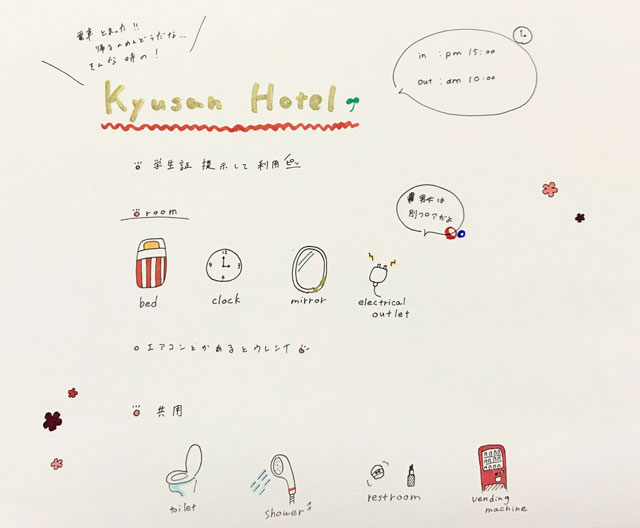 電車 とまった!!
帰るのめんどうだな...
そんな時の!
in : pm 15:00
out : am 10:00
Kyusan Hotel
学生証 提示して利用 ピッ
room
男女は
別フロアだよ
bed
clock
mirror
electrical
outlet
エアコンとかあるとウレシイ
共用
toilet
shower
restroom
vending
machine